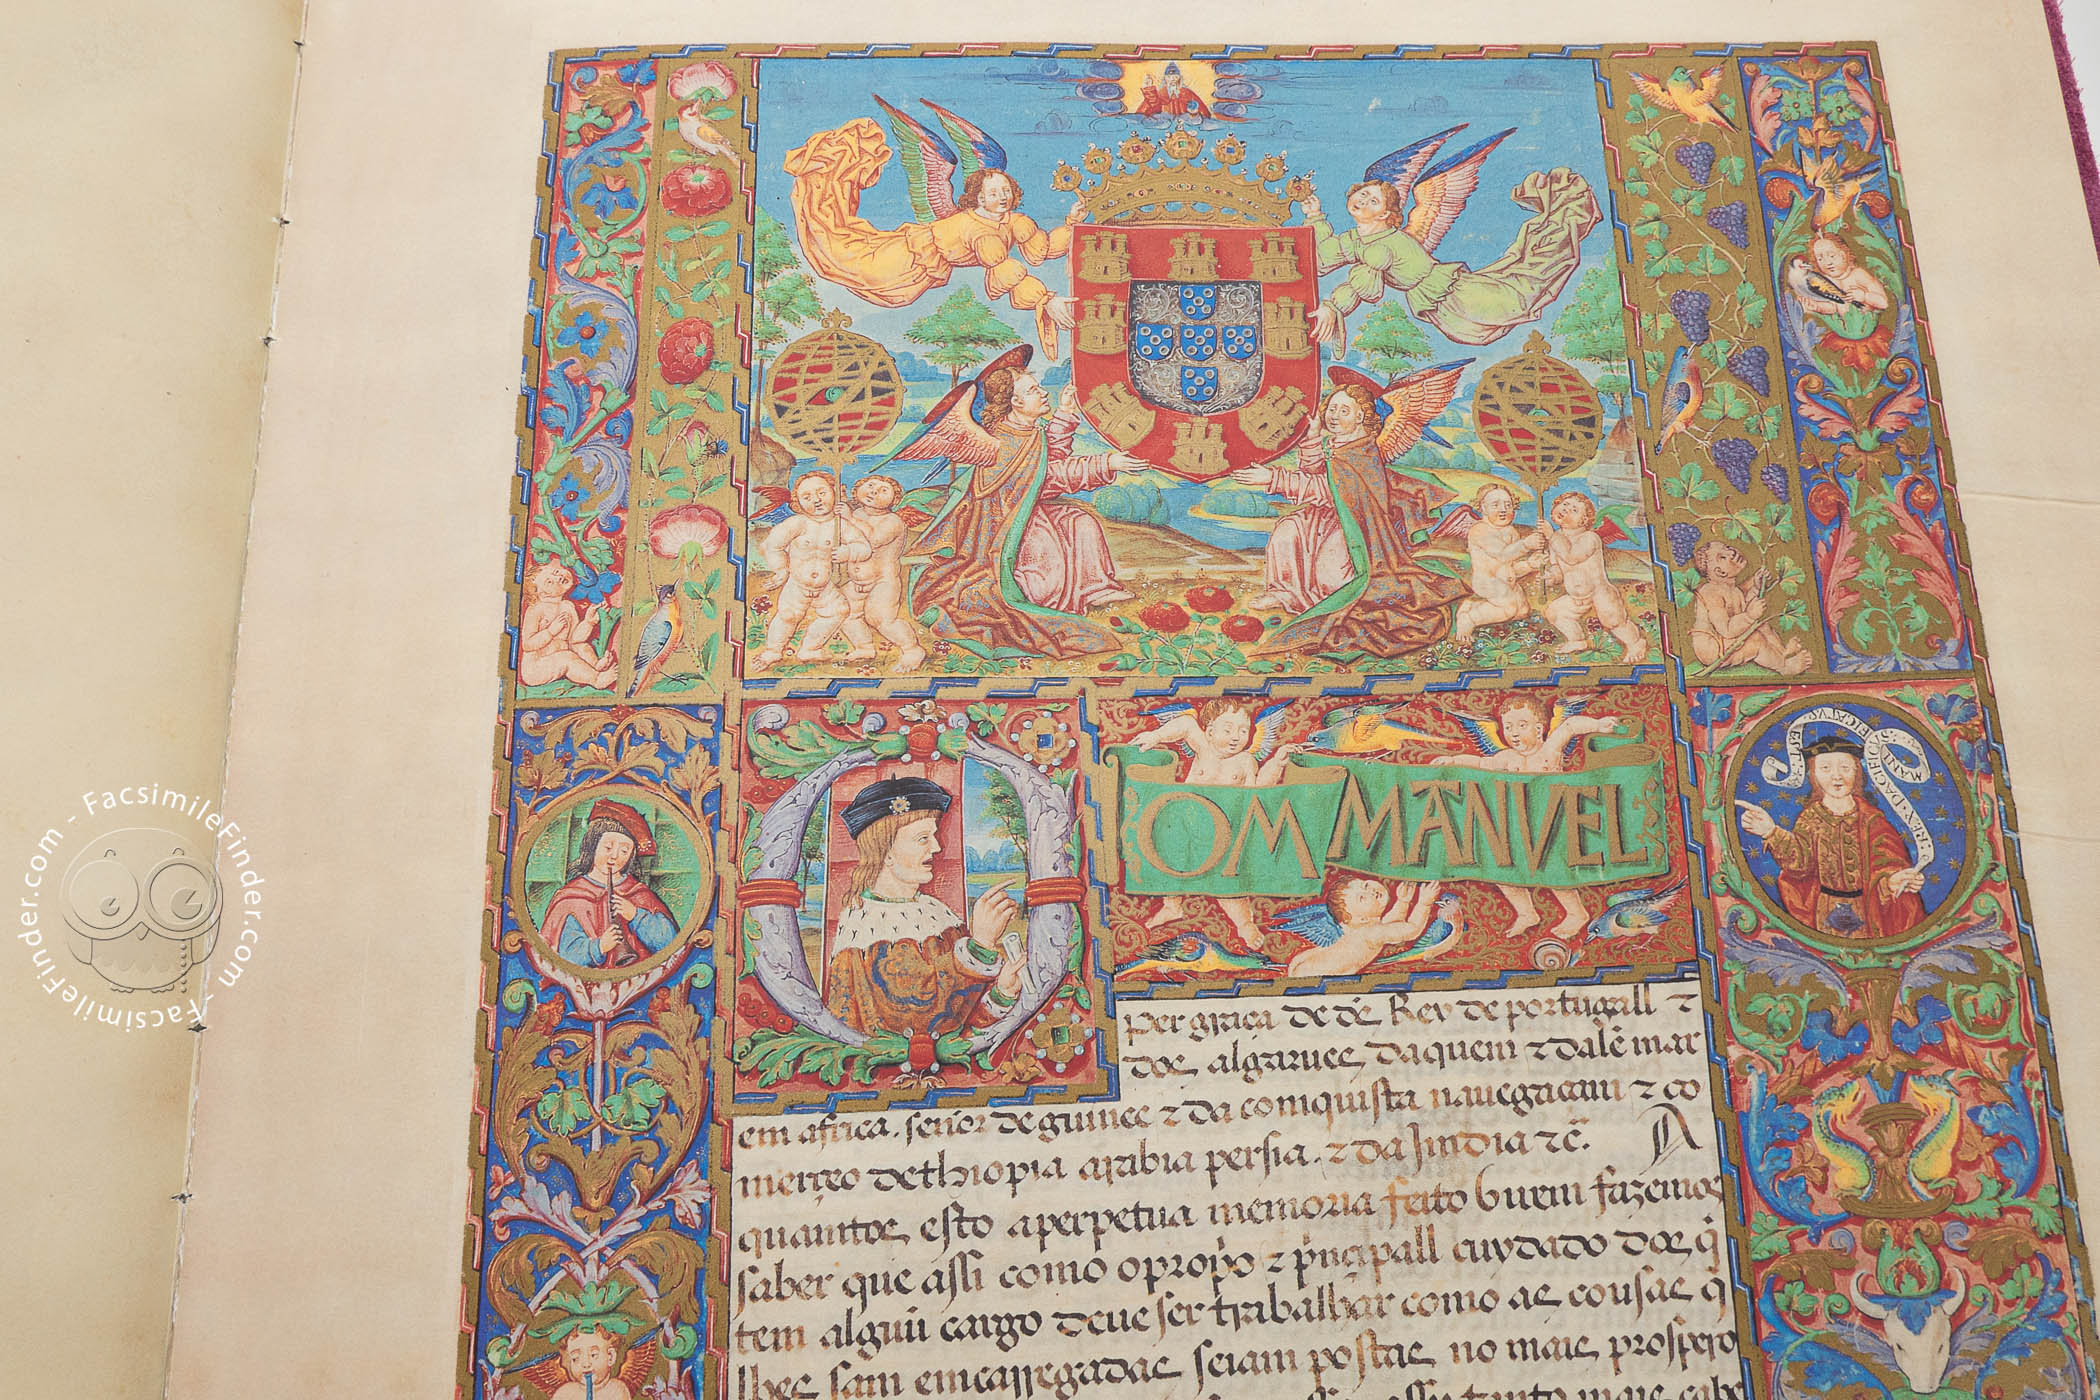 OM MANVEL
MANI·S·DICIFICATVS·EST·
REX·DACIE
per graça de dẽ Rey de portugall ⁊
dos algarues daquem ⁊ dalẽ mar
em africa. señor de guinee ⁊ da comquista nauegaçam ⁊ co
merçeo dethiopia arabia persia. ⁊ da Jmdia ⁊cª. A
quamtos esto aperpetua memoria feito buem fazemos
saber que assi como o prop̃o ⁊ p̃ncipall cuydado dos q̃
tem alguũ cargo deue ser trabalhar como as cousas q̃
lhes sam emcarregadas seiam postas no mais prospero
facsimilefinder.com - FacsimileFinder.com - FacsimileFinder.com